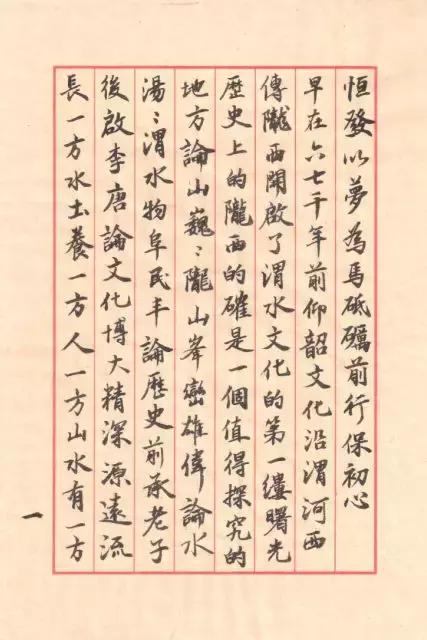 恒發以夢為馬砥礪前行保初心
早在六七千年前仰韶文化沿渭河西
傳隴西開啟了渭水文化的第一縷曙光
歷史上的隴西的確是一個值得探究的
地方論山巍〻隴山峯巒雄偉論水
湯〻渭水物阜民丰論歷史前承老子
後啟李唐論文化博大精深源遠流
長一方水土養一方人一方山水有一方
一